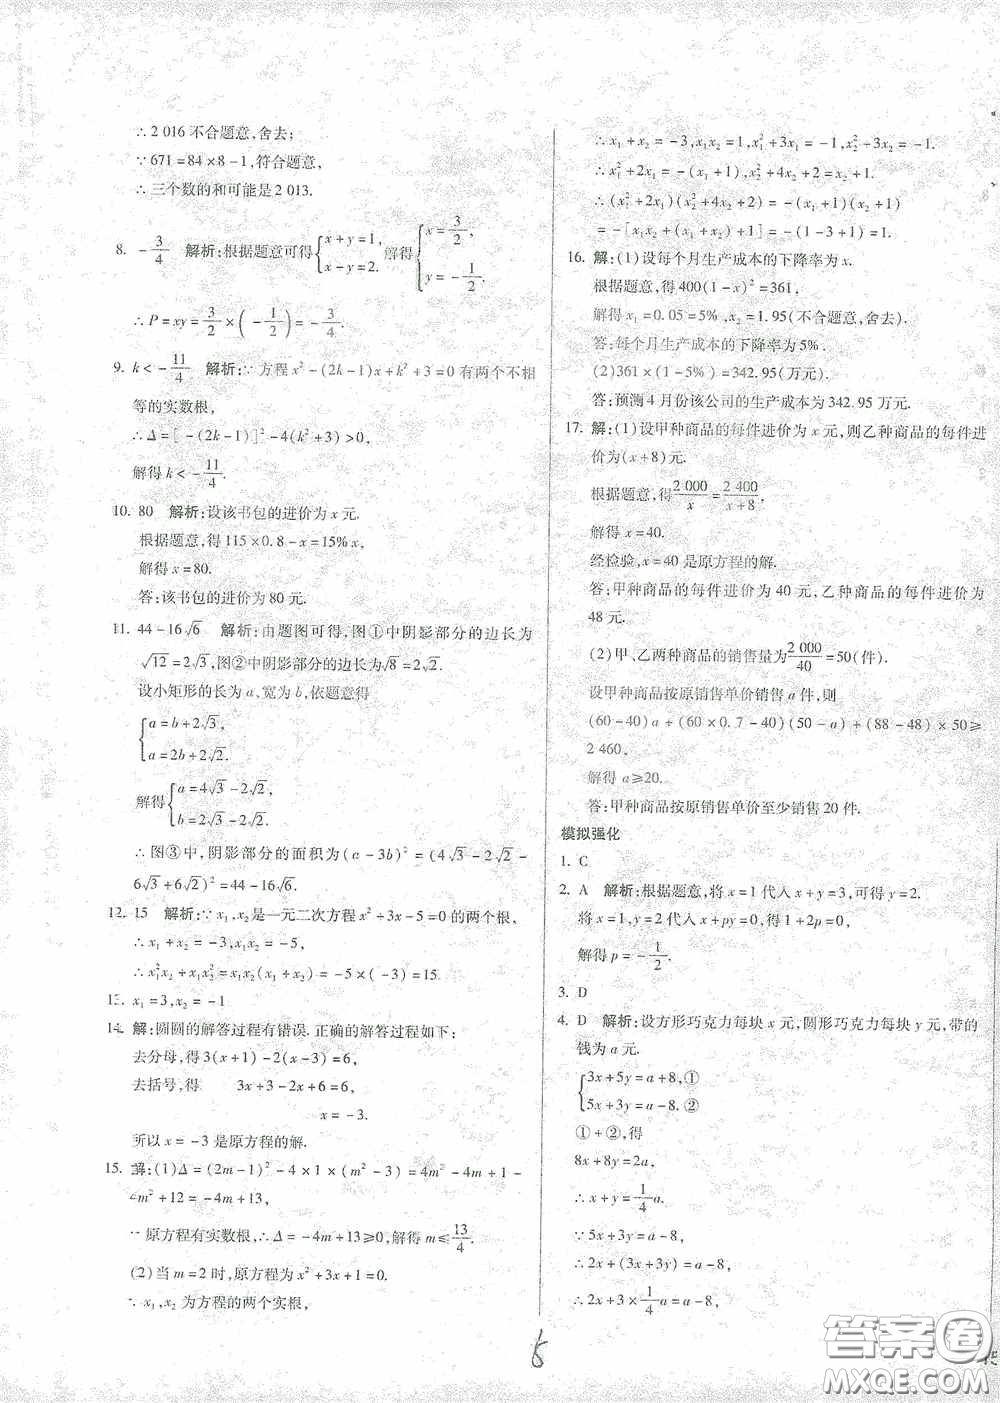 ∴2 016不合题意,舍去;
∵671=84×8-1,符合题意,
∴三个数的和可能是2 013.
8. -3/4 解析:根据题意可得{x+y=1, x-y=2. 解得{x=3/2, y=-1/2.
∴P=xy=3/2×(-1/2)=-3/4.
9. k<-11/4 解析:∵方程x²-(2k-1)x+k²+3=0有两个不相
等的实数根,
∴Δ=[-(2k-1)]²-4(k²+3)>0,
解得k<-11/4.
10. 80 解析:设该书包的进价为x元.
根据题意,得115×0.8-x=15%x,
解得x=80.
答:该书包的进价为80元.
11. 44-16√6 解析:由题图可得,图①中阴影部分的边长为
√12=2√3,图②中阴影部分的边长为√8=2√2.
设小矩形的长为a,宽为b,依题意得
{a=b+2√3, a=2b+2√2.
解得{a=4√3-2√2, b=2√3-2√2.
∴图③中,阴影部分的面积为(a-3b)²=(4√3-2√2-
6√3+6√2)²=44-16√6.
12. 15 解析:∵x₁,x₂是一元二次方程x²+3x-5=0的两个根,
∴x₁+x₂=-3,x₁x₂=-5,
∴x₁²x₂+x₁x₂²=x₁x₂(x₁+x₂)=-5×(-3)=15.
13. x₁=3,x₂=-1
14. 解:圆圆的解答过程有错误.正确的解答过程如下:
去分母,得3(x+1)-2(x-3)=6,
去括号,得 3x+3-2x+6=6,
x=-3.
所以x=-3是原方程的解.
15. 解:(1)Δ=(2m-1)²-4×1×(m²-3)=4m²-4m+1-
4m²+12=-4m+13,
∵原方程有实数根,∴Δ=-4m+13≥0,解得m≤13/4.
(2)当m=2时,原方程为x²+3x+1=0.
∵x₁,x₂为方程的两个实根,
∴x₁+x₂=-3,x₁x₂=1,x₁²+3x₁=-1,x₂²+3x₂=-1.
∴x₁²+2x₁=-(x₁+1),x₂²+4x₂+2=x₂+1.
∴(x₁²+2x₁)(x₂²+4x₂+2)=-(x₁+1)(x₂+1)
=-[x₁x₂+(x₁+x₂)+1]=-(1-3+1)=1.
16. 解:(1)设每个月生产成本的下降率为x.
根据题意,得400(1-x)²=361,
解得x₁=0.05=5%,x₂=1.95(不合题意,舍去).
答:每个月生产成本的下降率为5%.
(2)361×(1-5%)=342.95(万元).
答:预测4月份该公司的生产成本为342.95万元.
17. 解:(1)设甲种商品的每件进价为x元,则乙种商品的每件进
价为(x+8)元.
根据题意,得2 000/x=2 400/(x+8),
解得x=40.
经检验,x=40是原方程的解.
答:甲种商品的每件进价为40元,乙种商品的每件进价为
48元.
(2)甲、乙两种商品的销售量为2 000/40=50(件).
设甲种商品按原销售单价销售a件,则
(60-40)a+(60×0.7-40)(50-a)+(88-48)×50≥
2 460,
解得a≥20.
答:甲种商品按原销售单价至少销售20件.
模拟强化
1. C
2. A 解析:根据题意,将x=1代入x+y=3,可得y=2.
将x=1,y=2代入x+py=0,得1+2p=0,
解得p=-1/2.
3. D
4. D 解析:设方形巧克力每块x元,圆形巧克力每块y元,带的
钱为a元.
{3x+5y=a+8,① 5x+3y=a-8.②
①+②,得
8x+8y=2a,
∴x+y=1/4a.
∵5x+3y=a-8,
∴2x+(3x+3y)=a-8,
∴2x+3×1/4a=a-8,
答案圈
MXQE.COM